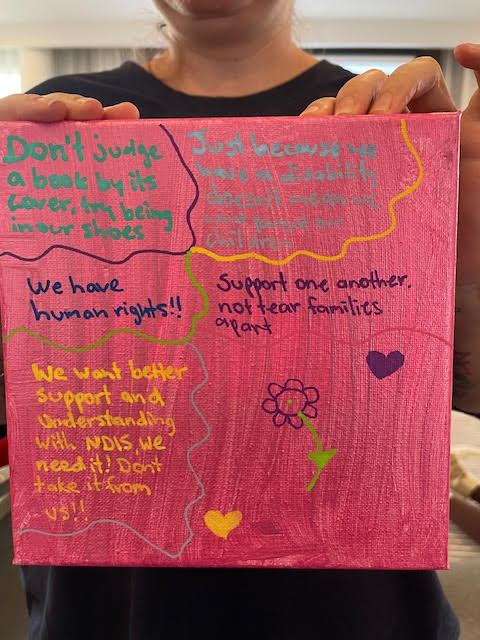 Don't judge
a book by its
cover, try being
in our shoes
Just because we
have a disability
doesn't mean we
cant parent our
children
We have
human rights!!
Support one another,
not tear families
apart
We want better
support and
Understanding
with NDIS, we
need it! Dont
take it from
us!!